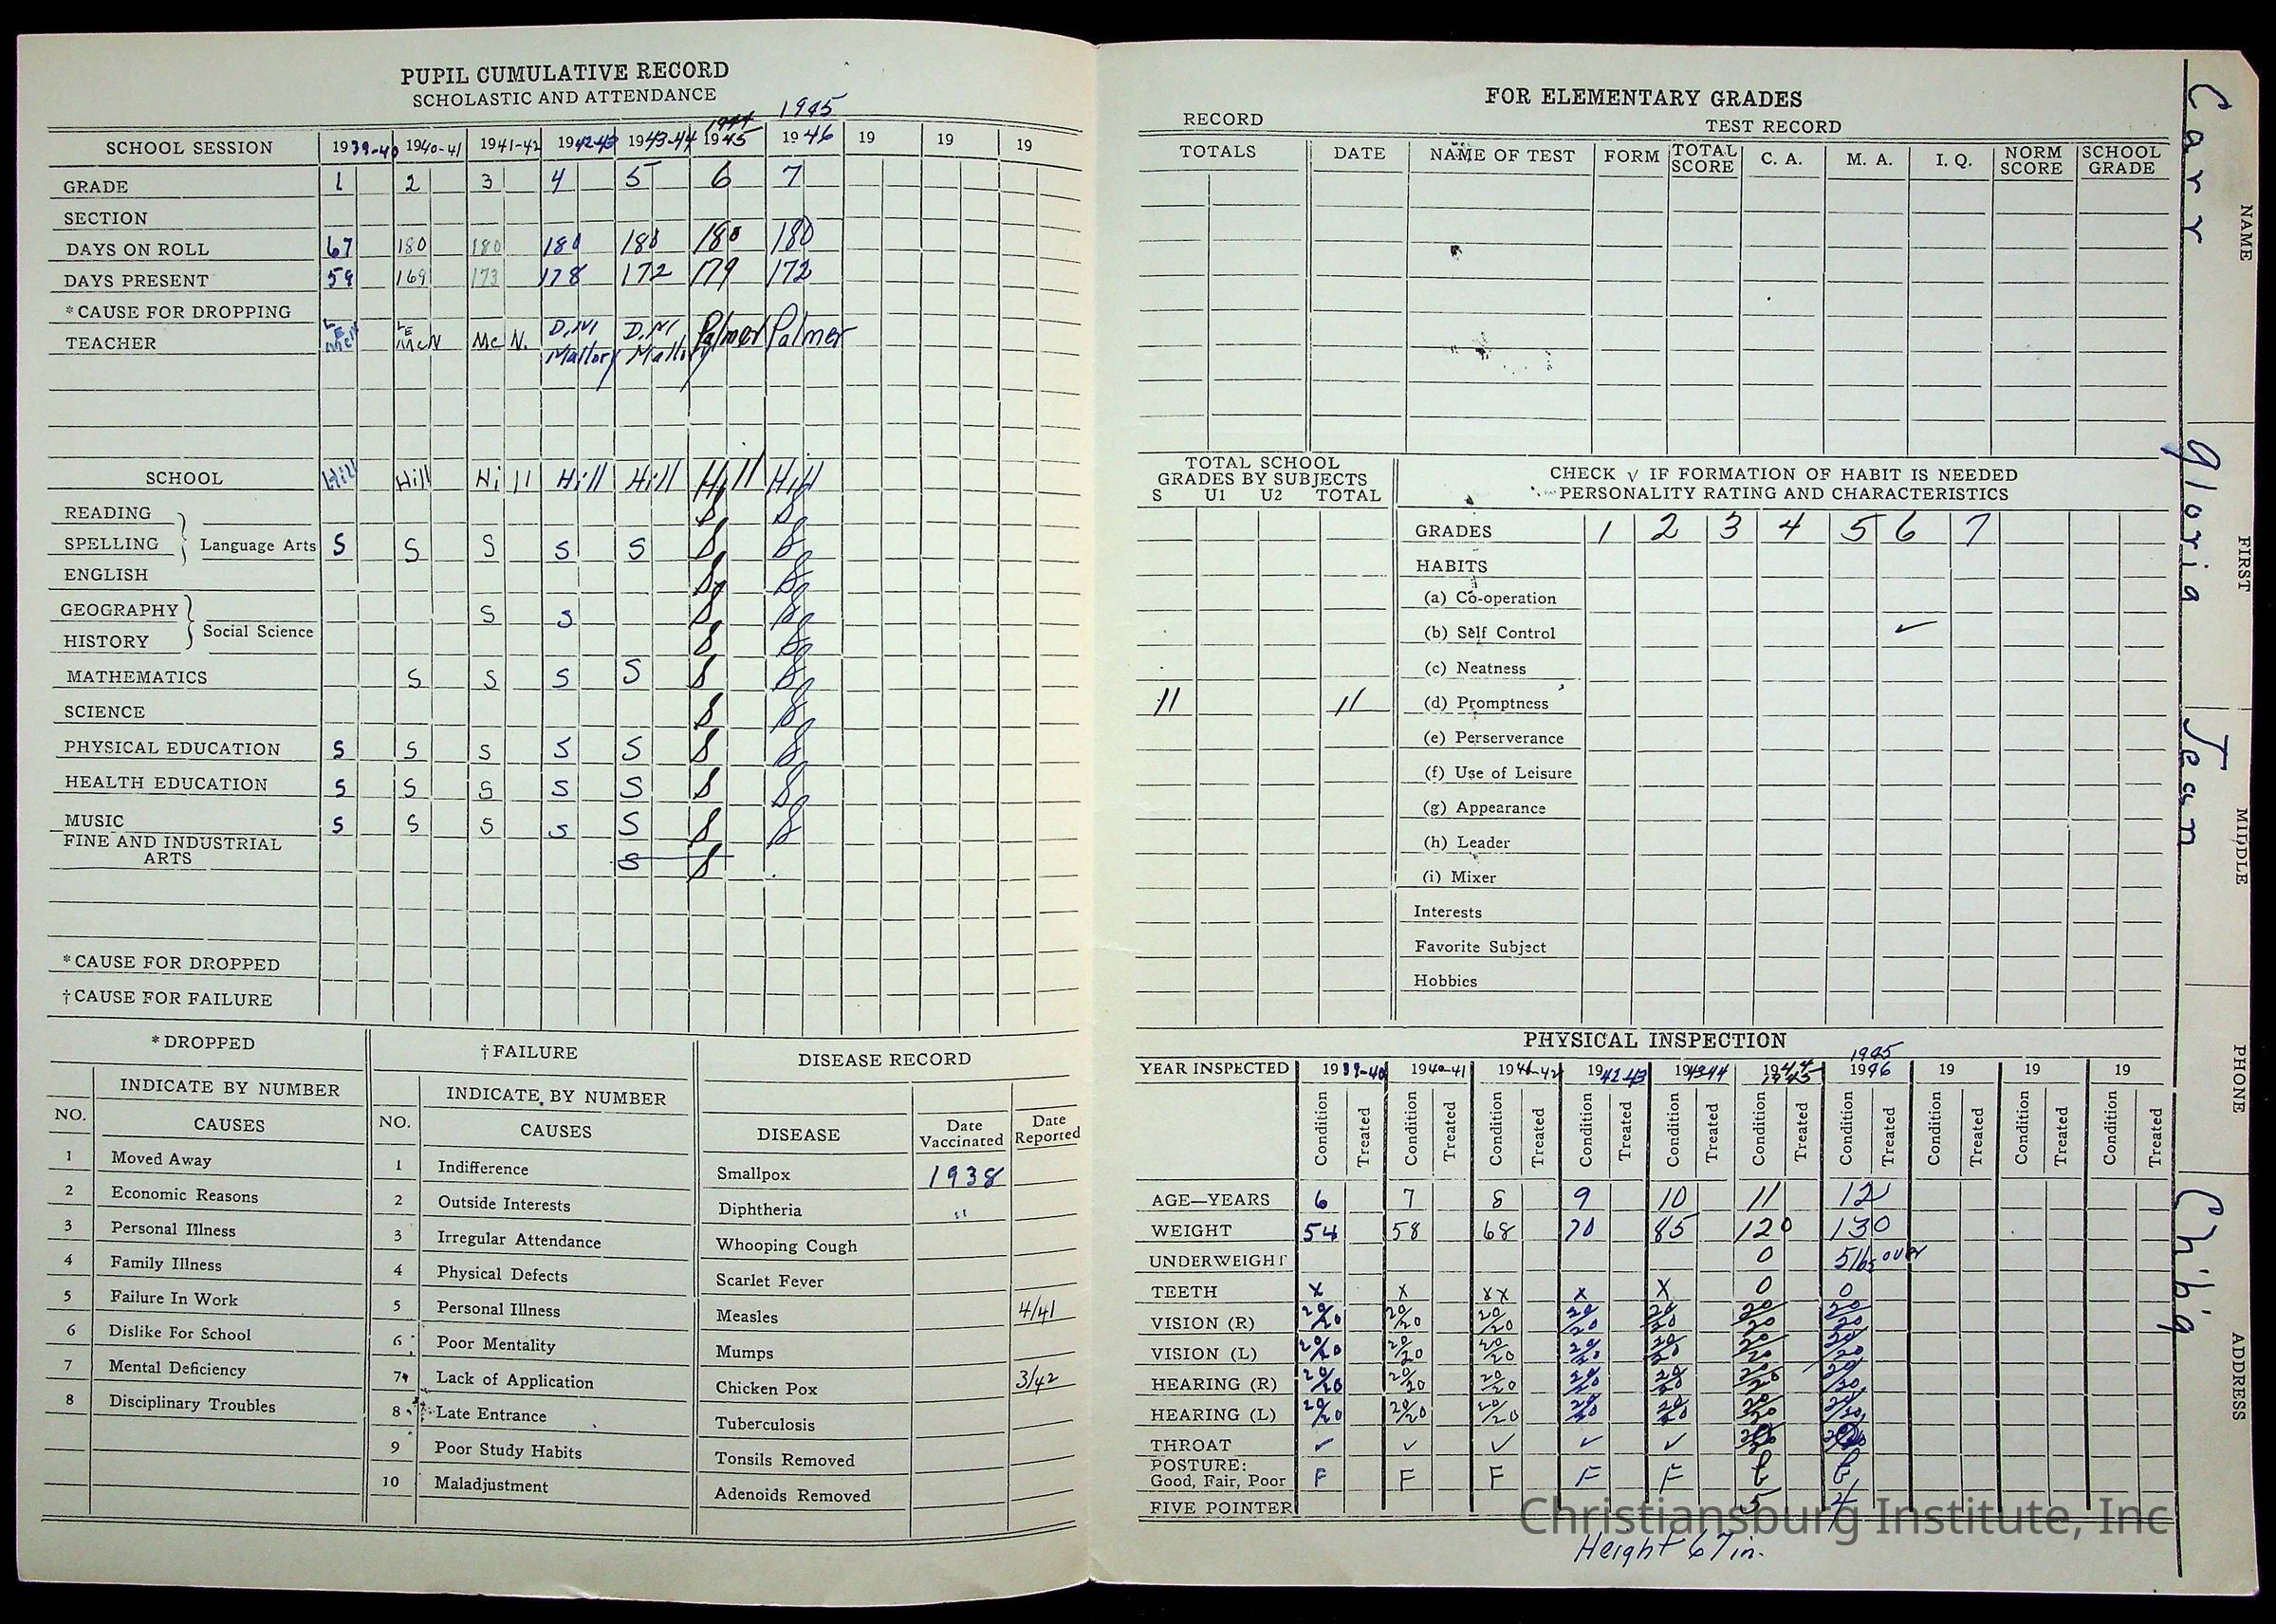 PUPIL CUMULATIVE RECORD
SCHOLASTIC AND ATTENDANCE
1944 1945
SCHOOL SESSION 1939-40 1940-41 1941-42 1942-43 1943-44 1945 1946 19 19 19
GRADE 1 2 3 4 5 6 7
SECTION
DAYS ON ROLL 67 180 180 180 180 180 180
DAYS PRESENT 59 169 173 178 172 179 172
*CAUSE FOR DROPPING
TEACHER McN McN. D.M. Mallory D.M. Mallory Palmer Palmer
SCHOOL Hill Hill Hill Hill Hill Hill Hill
READING S S
SPELLING Language Arts S S S S S S S
ENGLISH S S
GEOGRAPHY S S S S
HISTORY Social Science S S
MATHEMATICS S S S S S S
SCIENCE S S
PHYSICAL EDUCATION S S S S S S S
HEALTH EDUCATION S S S S S S S
MUSIC S S S S S S S
FINE AND INDUSTRIAL
ARTS S S
*CAUSE FOR DROPPED
†CAUSE FOR FAILURE
*DROPPED
INDICATE BY NUMBER
NO. CAUSES
1 Moved Away
2 Economic Reasons
3 Personal Illness
4 Family Illness
5 Failure In Work
6 Dislike For School
7 Mental Deficiency
8 Disciplinary Troubles
†FAILURE
INDICATE BY NUMBER
NO. CAUSES
1 Indifference
2 Outside Interests
3 Irregular Attendance
4 Physical Defects
5 Personal Illness
6 Poor Mentality
7 Lack of Application
8 Late Entrance
9 Poor Study Habits
10 Maladjustment
DISEASE RECORD
DISEASE Date Vaccinated Date Reported
Smallpox 1938
Diphtheria "
Whooping Cough
Scarlet Fever
Measles 4/41
Mumps
Chicken Pox 3/42
Tuberculosis
Tonsils Removed
Adenoids Removed
FOR ELEMENTARY GRADES
RECORD TEST RECORD
TOTALS DATE NAME OF TEST FORM TOTAL SCORE C. A. M. A. I. Q. NORM SCORE SCHOOL GRADE
TOTAL SCHOOL
GRADES BY SUBJECTS
S U1 U2 TOTAL
11 11
CHECK √ IF FORMATION OF HABIT IS NEEDED
PERSONALITY RATING AND CHARACTERISTICS
GRADES 1 2 3 4 5 6 7
HABITS
(a) Co-operation
(b) Self Control ✓
(c) Neatness
(d) Promptness
(e) Perserverance
(f) Use of Leisure
(g) Appearance
(h) Leader
(i) Mixer
Interests
Favorite Subject
Hobbies
PHYSICAL INSPECTION
1945
YEAR INSPECTED 1939-40 1940-41 1941-42 1942-43 1943-44 1944 1945 1946 19 19 19
Condition Treated Condition Treated Condition Treated Condition Treated Condition Treated Condition Treated Condition Treated Condition Treated Condition Treated Condition Treated
AGE—YEARS 6 7 8 9 10 11 12
WEIGHT 54 58 68 70 85 120 130
UNDERWEIGHT 0 5 lbs over
TEETH x x xx x x 0 0
VISION (R) 20/20 20/20 20/20 20/20 20/20 20/20 20/20
VISION (L) 20/20 20/20 20/20 20/20 20/20 20/20 20/20
HEARING (R) 20/20 20/20 20/20 20/20 20/20 20/20 20/20
HEARING (L) 20/20 20/20 20/20 20/20 20/20 20/20 20/20
THROAT ✓ ✓ ✓ ✓ ✓
POSTURE:
Good, Fair, Poor F F F F F
FIVE POINTER 5 4
Height 67 in.
Christiansburg Institute, Inc
Carr Gloria Jean Chibig
NAME FIRST MIDDLE PHONE ADDRESS